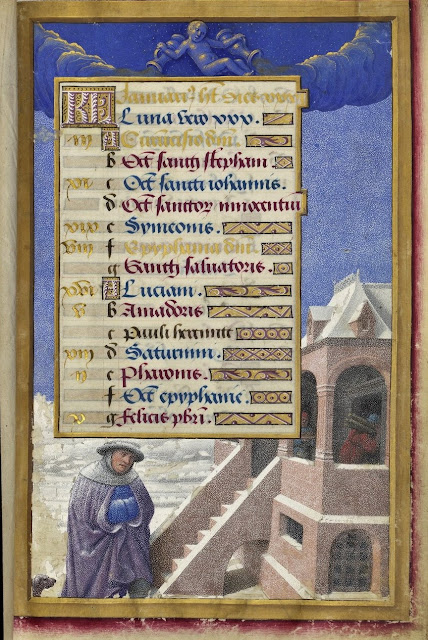 KL Januari⁹ ht dies
Luna vero xxx.
iij A Circuncisio dni.
b Oct sancti stephani
xi c Oct sancti iohannis.
d Oct sanctor innocentiu
xix e Symeonis.
viij f Epyphania dni
g Sancti saluatoris.
xvi A Luciani
v b Amadoris
c Pauli heremite
xiij d Saturnini.
e Pharonis.
f Oct epyphanie
x g Felicis pbri.